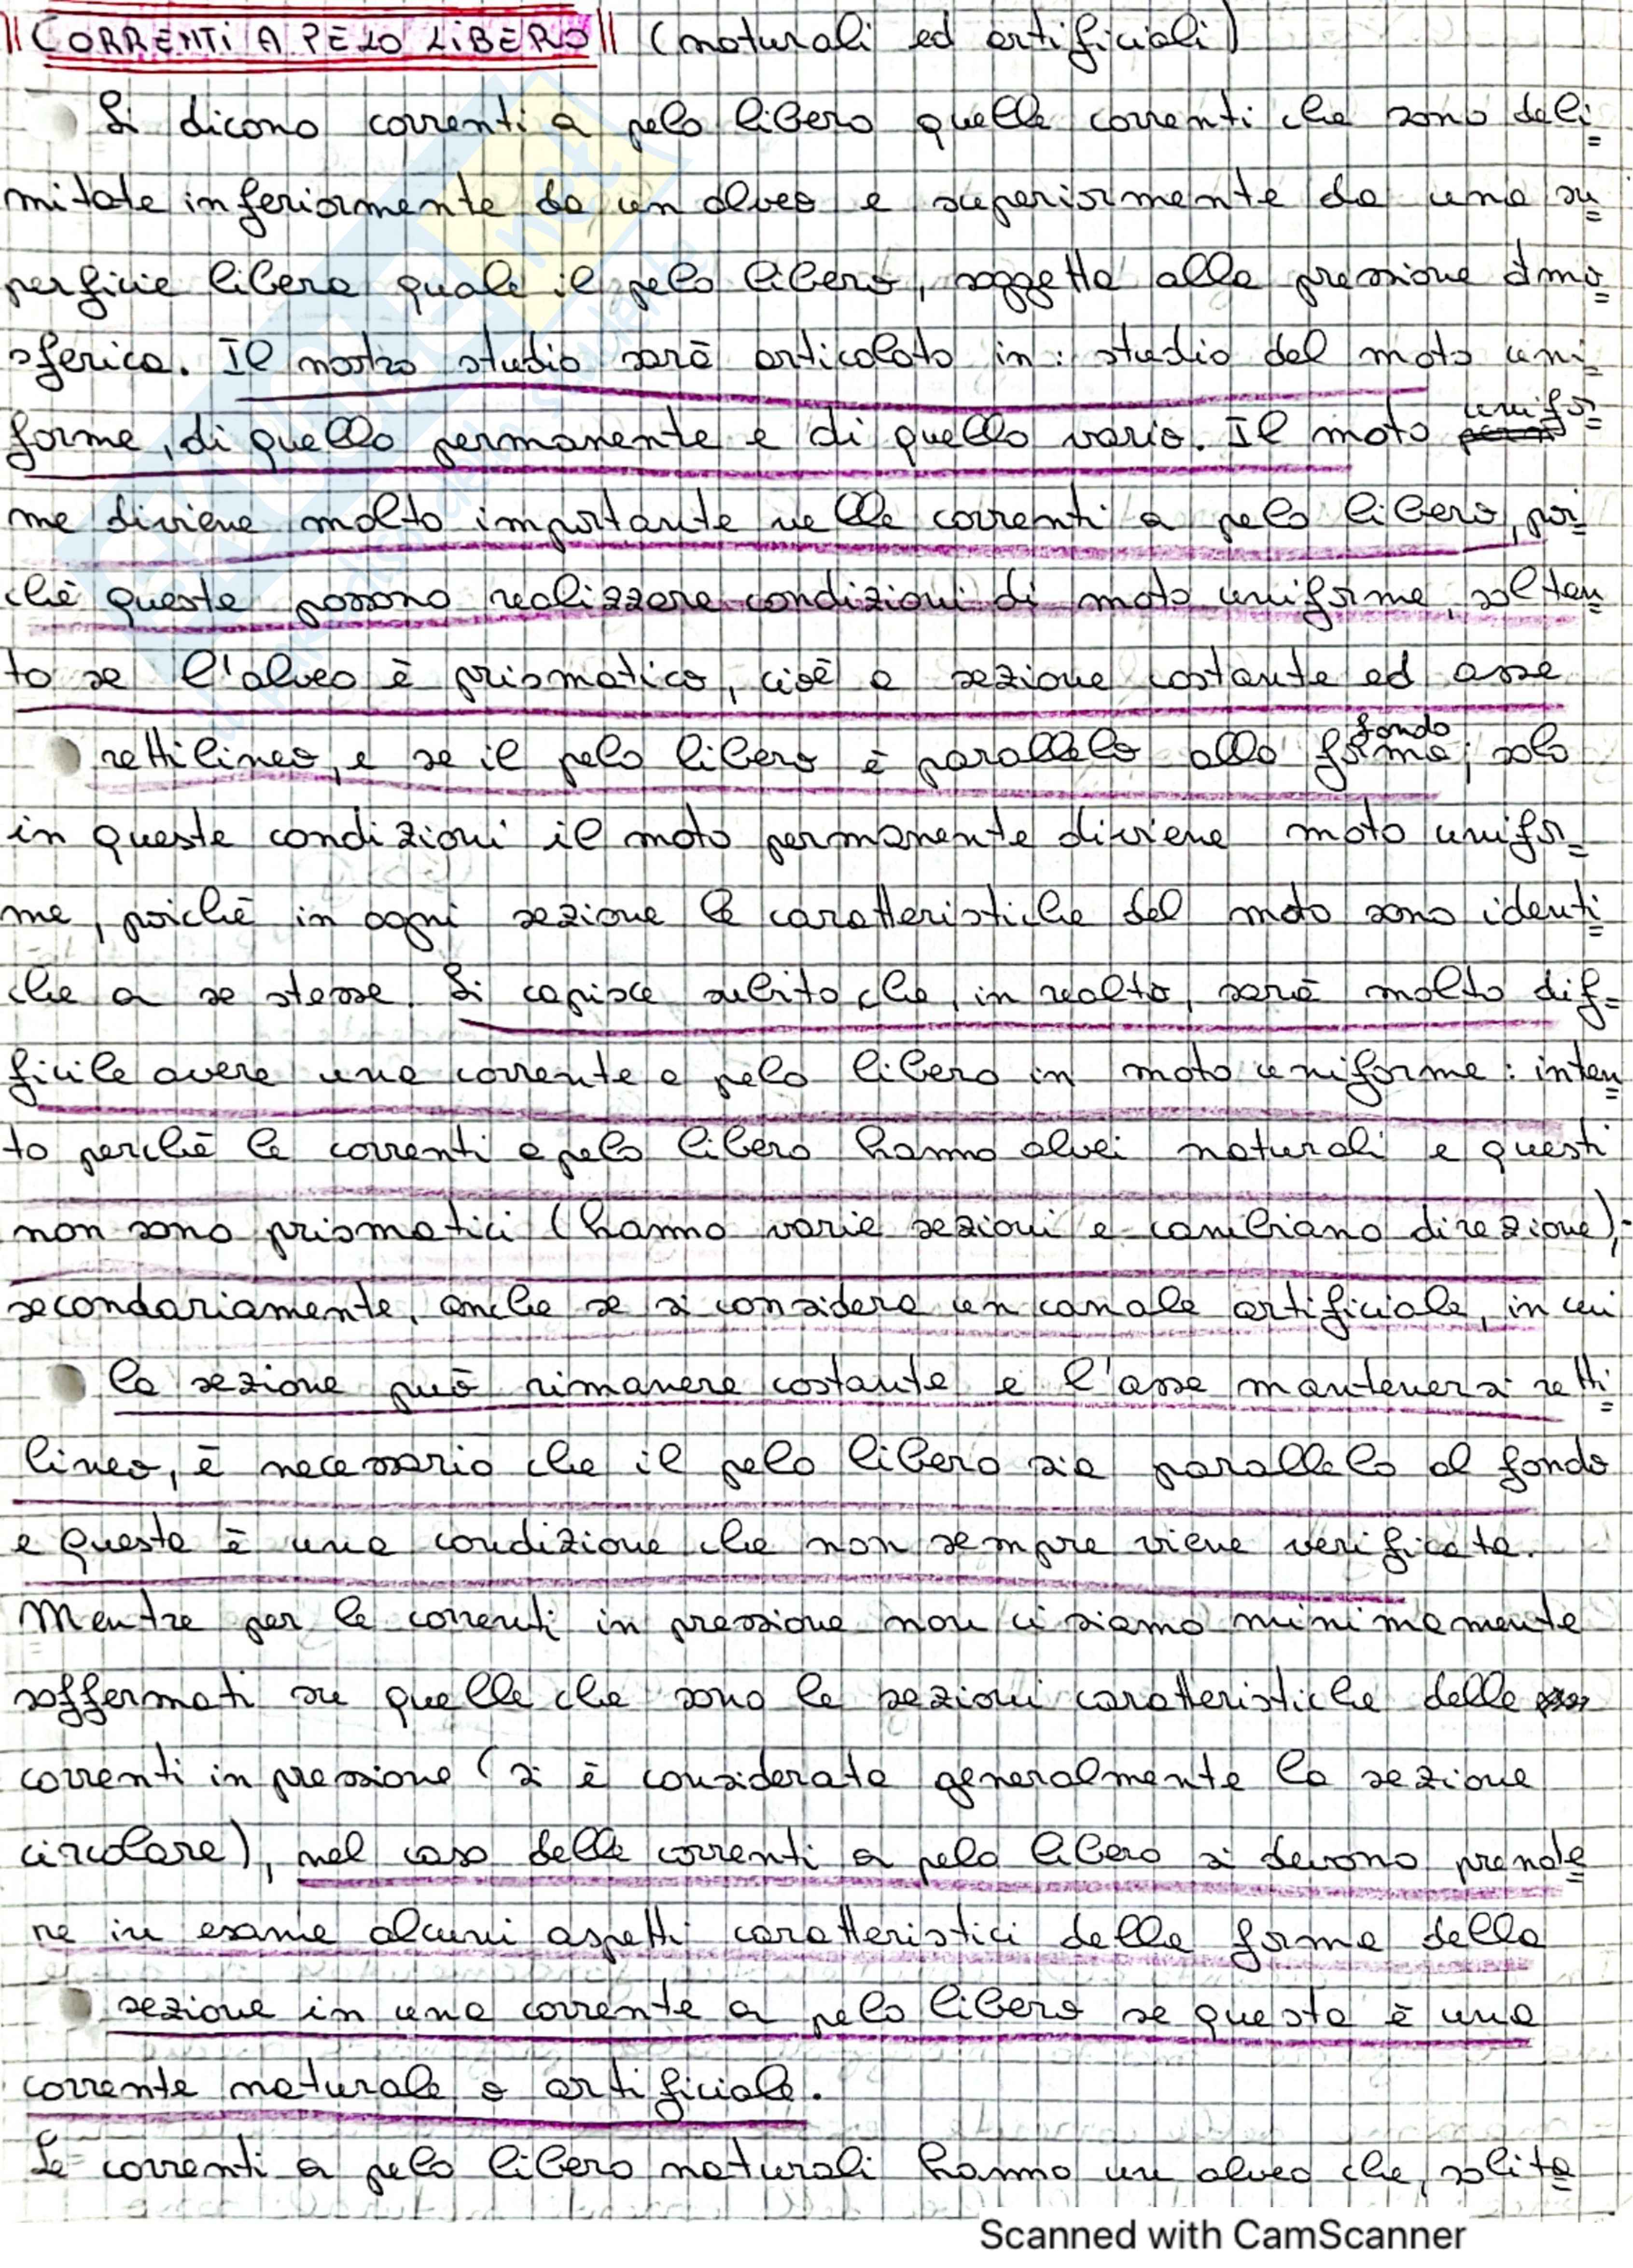 CORRENTI A PELO LIBERO (naturali ed artificiali)
Si dicono correnti a pelo libero quelle correnti che sono deli=
mitate inferiormente da un alveo e superiormente da una su=
perficie libera quale il pelo libero, soggetta alla pressione atmo=
sferica. Il nostro studio sarà articolato in: studio del moto uni=
forme, di quello permanente e di quello vario. Il moto unifor=
me diviene molto importante nelle correnti a pelo libero, poi=
chè queste possono realizzare condizioni di moto uniforme, soltan=
to se l'alveo è prismatico, cioè a sezione costante ed asse
rettilineo, e se il pelo libero è parallelo alla forma fondo; solo
in queste condizioni il moto permanente diviene moto unifor=
me, poichè in ogni sezione le caratteristiche del moto sono identi=
che a se stesse. Si capisce subito che, in realtà, sarà molto dif=
ficile avere una corrente a pelo libero in moto uniforme: intan=
to perchè le correnti a pelo libero hanno alvei naturali e questi
non sono prismatici (hanno varie sezioni e cambiano direzione);
secondariamente, anche se si considera un canale artificiale, in cui
la sezione può rimanere costante e l'asse mantenersi retti=
lineo, è necessario che il pelo libero sia parallelo al fondo
e questa è una condizione che non sempre viene verificata.
Mentre per le correnti in pressione non ci siamo minimamente
soffermati su quelle che sono le sezioni caratteristiche delle
correnti in pressione (si è considerata generalmente la sezione
circolare), nel caso delle correnti a pelo libero si devono prende=
re in esame alcuni aspetti caratteristici della forma della
sezione in una corrente a pelo libero se questa è una
corrente naturale o artificiale.
Le correnti a pelo libero naturali hanno un alveo che, solita=
Scanned with CamScanner